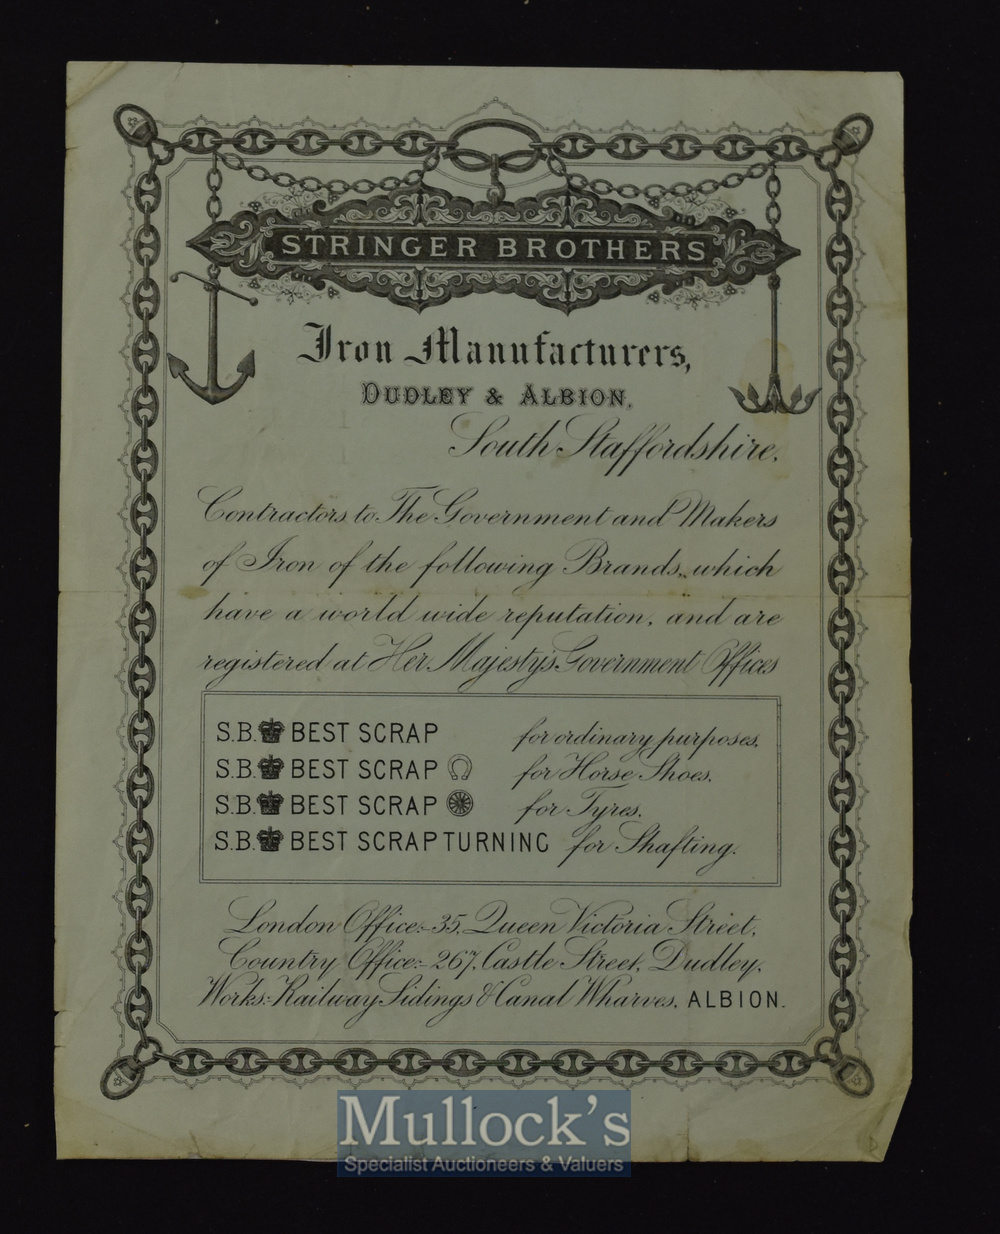 STRINGER BROTHERS
Iron Manufacturers,
DUDLEY & ALBION,
South Staffordshire.
Contractors to The Government and Makers
of Iron of the following Brands, which
have a world wide reputation, and are
registered at Her Majesty's Government Offices
S.B. BEST SCRAP for ordinary purposes.
S.B. BEST SCRAP for Horse Shoes.
S.B. BEST SCRAP for Tyres.
S.B. BEST SCRAP TURNING for Shafting.
London Office:- 35, Queen Victoria Street,
Country Office:- 267, Castle Street, Dudley,
Works:- Railway Sidings & Canal Wharves, ALBION.
Mullock's
Specialist Auctioneers & Valuers